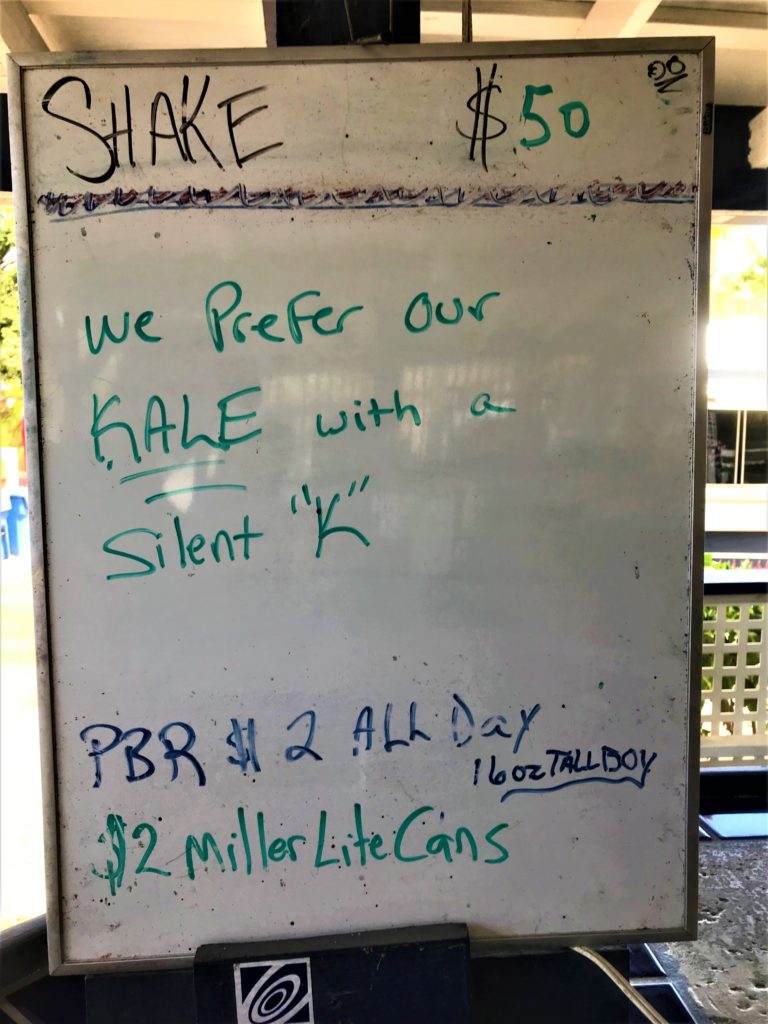 SHAKE $.50
we Prefer our
KALE with a
Silent "K"
PBR $2 ALL Day
16oz TALLBOY
$2 Miller Lite Cans